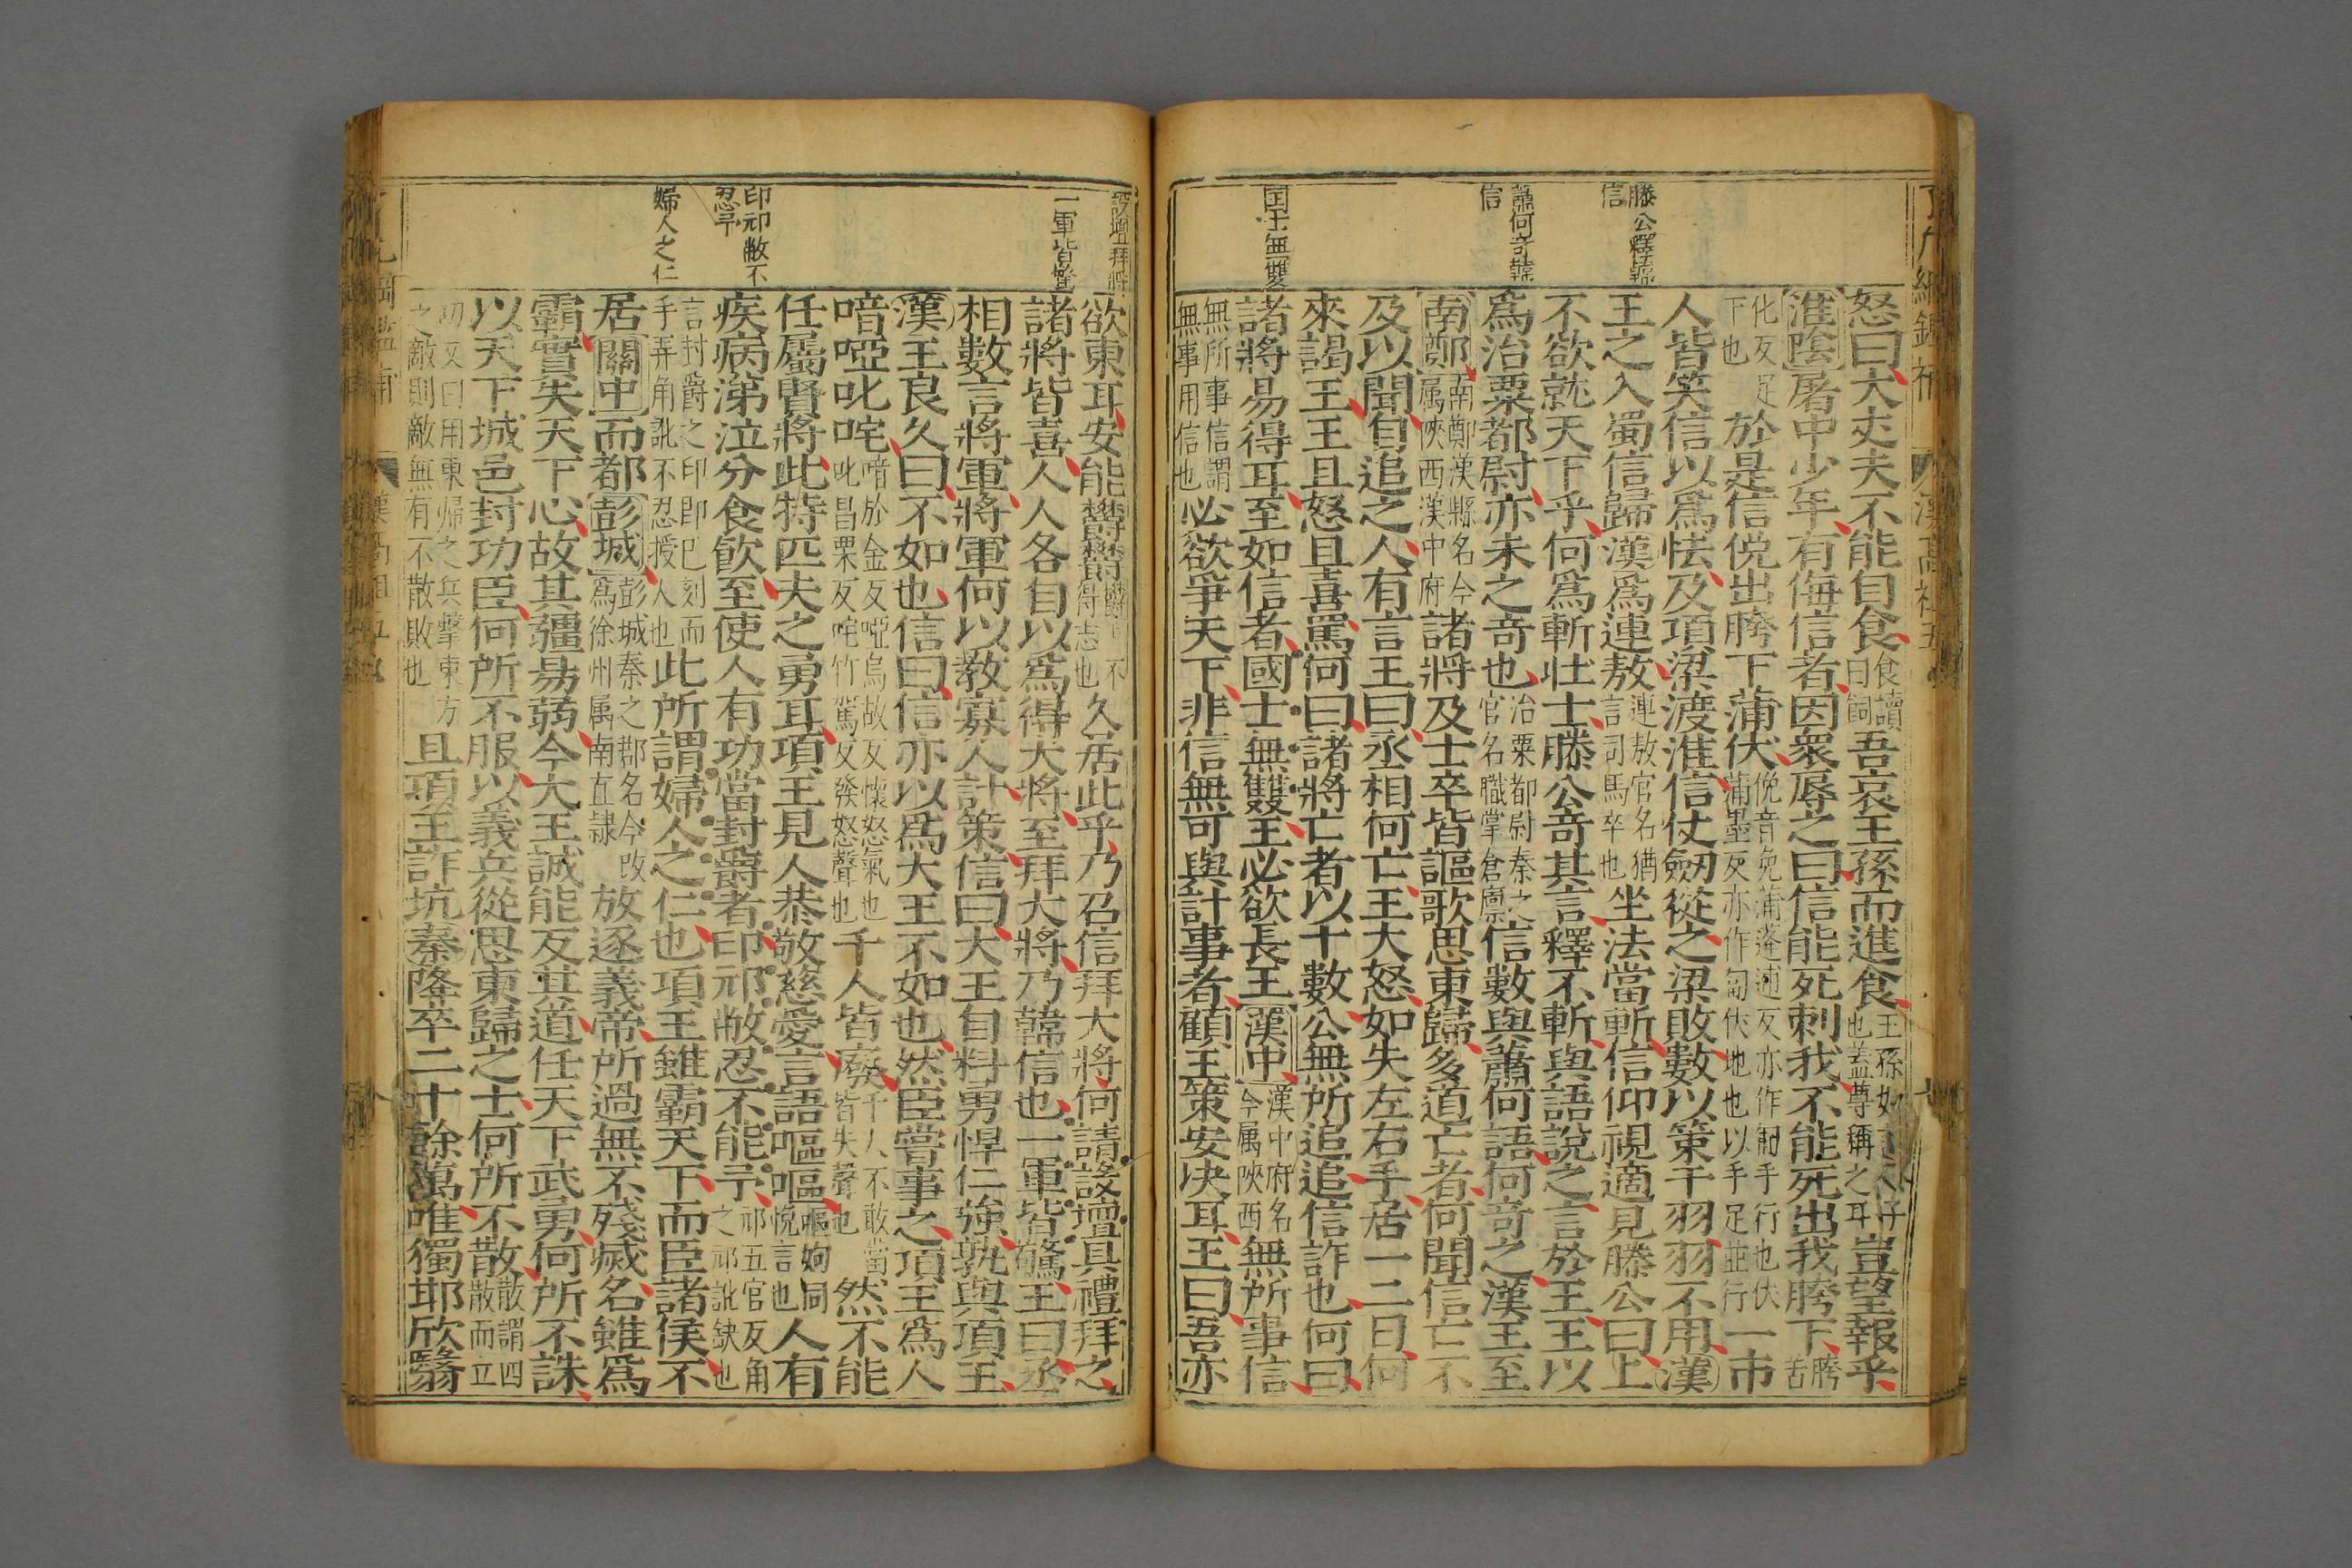 滕公釋韓
信
蕭何奇韓
信
国士無雙
怒曰大丈夫不能自食食讀曰飼吾哀王孫而進食王孫如也蓋尊稱之耳豈望報乎
淮陰屠中少年有侮信者因衆辱之曰信能死刺我不能死出我胯下胯苦
化反足下也於是信俛出胯下蒲伏俛音免蒲蓬逋反亦作匍手行也伏蒲墨反亦作匐伏地也以手足並行一市
人皆笑信以爲怯及項梁渡淮信仗劒從之梁敗數以策干羽羽不用漢
王之入蜀信歸漢爲連敖連敖官名猶言司馬卒也坐法當斬信仰視適見滕公曰上
不欲就天下乎何爲斬壮士滕公奇其言釋不斬與語説之言於王王以
爲治粟都尉亦未之奇也治粟都尉秦之官名職掌倉廪信數與蕭何語何奇之漢王至
南鄭南鄭漢縣名今属陝西漢中府諸將及士卒皆謳歌思東歸多道亡者何聞信亡不
及以聞自追之人有言王曰丞相何亡王大怒如失左右手居一二日何
來謁王王且怒且喜罵何曰諸將亡者以十數公無所追追信詐也何曰
諸將易得耳至如信者國士無雙王必欲長王漢中漢中府名今属陝西無所事信
無所事信謂無事用信也必欲爭天下非信無可與計事者顧王策安决耳王曰吾亦
設壇拜將
一軍皆驚
印刓敝不
忍予
婦人之仁
欲東耳安能欝欝欝不得志也久居此乎乃召信拜大將何請設壇具禮拜之
諸將皆喜人人各自以爲得大將至拜大將乃韓信也一軍皆驚王曰丞
相數言將軍將軍何以教寡人計策信曰大王自料勇悍仁強孰與項王
漢王良久曰不如也信曰信亦以爲大王不如也然臣嘗事之項王爲人
喑啞叱咤喑於金反啞烏故反懷怒氣也叱昌栗反咤竹駕反發怒聲也千人皆廢千人不敢當皆失聲也然不能
任屬賢將此特匹夫之勇耳項王見人恭敬慈愛言語嘔嘔嘔姁同悅言也人有
疾病涕泣分食飲至使人有功當封爵者印刓敝忍不能予刓五官反角之刓訛缺也
言封爵之印即巳刻而手弄角訛不忍授人也此所謂婦人之仁也項王雖霸天下而臣諸侯不
居關中而都彭城彭城秦之郡名今改爲徐州属南直隷放逐義帝所過無不殘滅名雖爲
霸實失天下心故其疆昜弱今大王誠能反其道任天下武勇何所不誅
以天下城邑封功臣何所不服以義兵從思東歸之士何所不散散謂四散而立
功又曰用東歸之兵擊東方之敵則敵無有不散敗也且項王詐坑秦降卒二十餘萬唯獨邯欣翳